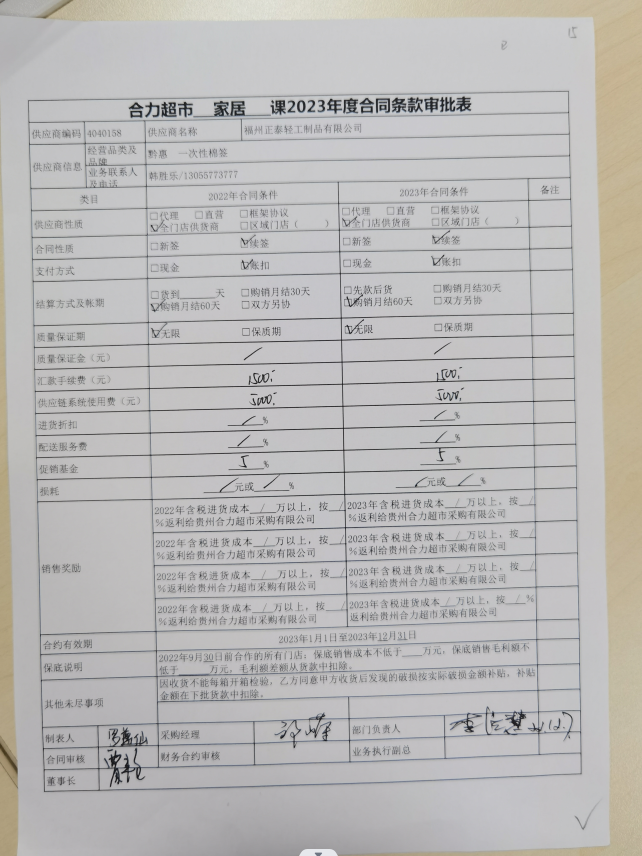 15
8
合力超市 家居 课2023年度合同条款审批表
供应商编码 4040158 供应商名称 福州正泰轻工制品有限公司
供应商信息 经营品类及品牌 黔惠 一次性棉签
业务联系人及电话 韩胜乐/13055773777
类目 2022年合同条件 2023年合同条件 备注
供应商性质 □代理 □直营 □框架协议 □代理 □直营 □框架协议
☑全门店供货商 □区域门店（ ） ☑全门店供货商 □区域门店（ ）
合同性质 □新签 ☑续签 □新签 ☑续签
支付方式 □现金 ☑账扣 □现金 ☑账扣
结算方式及帐期 □货到____天 □购销月结30天 □先款后货 □购销月结30天
☑购销月结60天 □双方另协 ☑购销月结60天 □双方另协
质量保证期 ☑无限 □保质期 ☑无限 □保质期
质量保证金（元） / /
汇款手续费（元） 1500 1500
供应链系统使用费（元） 5000 5000
进货折扣 / % / %
配送服务费 / % / %
促销基金 5 % 5 %
损耗 / 元或 / % / 元或 / %
销售奖励
2022年含税进货成本 / 万以上，按 / 2023年含税进货成本 / 万以上，按 /
%返利给贵州合力超市采购有限公司 %返利给贵州合力超市采购有限公司
2022年含税进货成本 / 万以上，按 / 2023年含税进货成本 / 万以上，按 /
%返利给贵州合力超市采购有限公司 %返利给贵州合力超市采购有限公司
2022年含税进货成本 / 万以上，按 / 2023年含税进货成本 / 万以上，按 /
%返利给贵州合力超市采购有限公司 %返利给贵州合力超市采购有限公司
2022年含税进货成本 / 万以上，按 / 2023年含税进货成本 / 万以上，按 / %
%返利给贵州合力超市采购有限公司 返利给贵州合力超市采购有限公司
合约有效期 2023年1月1日至2023年12月31日
保底说明 2022年9月30日前合作的所有门店：保底销售成本不低于____万元，保底销售毛利额不
低于____万元，毛利额差额从货款中扣除。
其他未尽事项 因收货不能每箱开箱检验，乙方同意甲方收货后发现的破损按实际破损金额补贴，补贴
金额在下批货款中扣除。
制表人 采购经理 部门负责人
合同审核 财务合约审核 业务执行副总
董事长